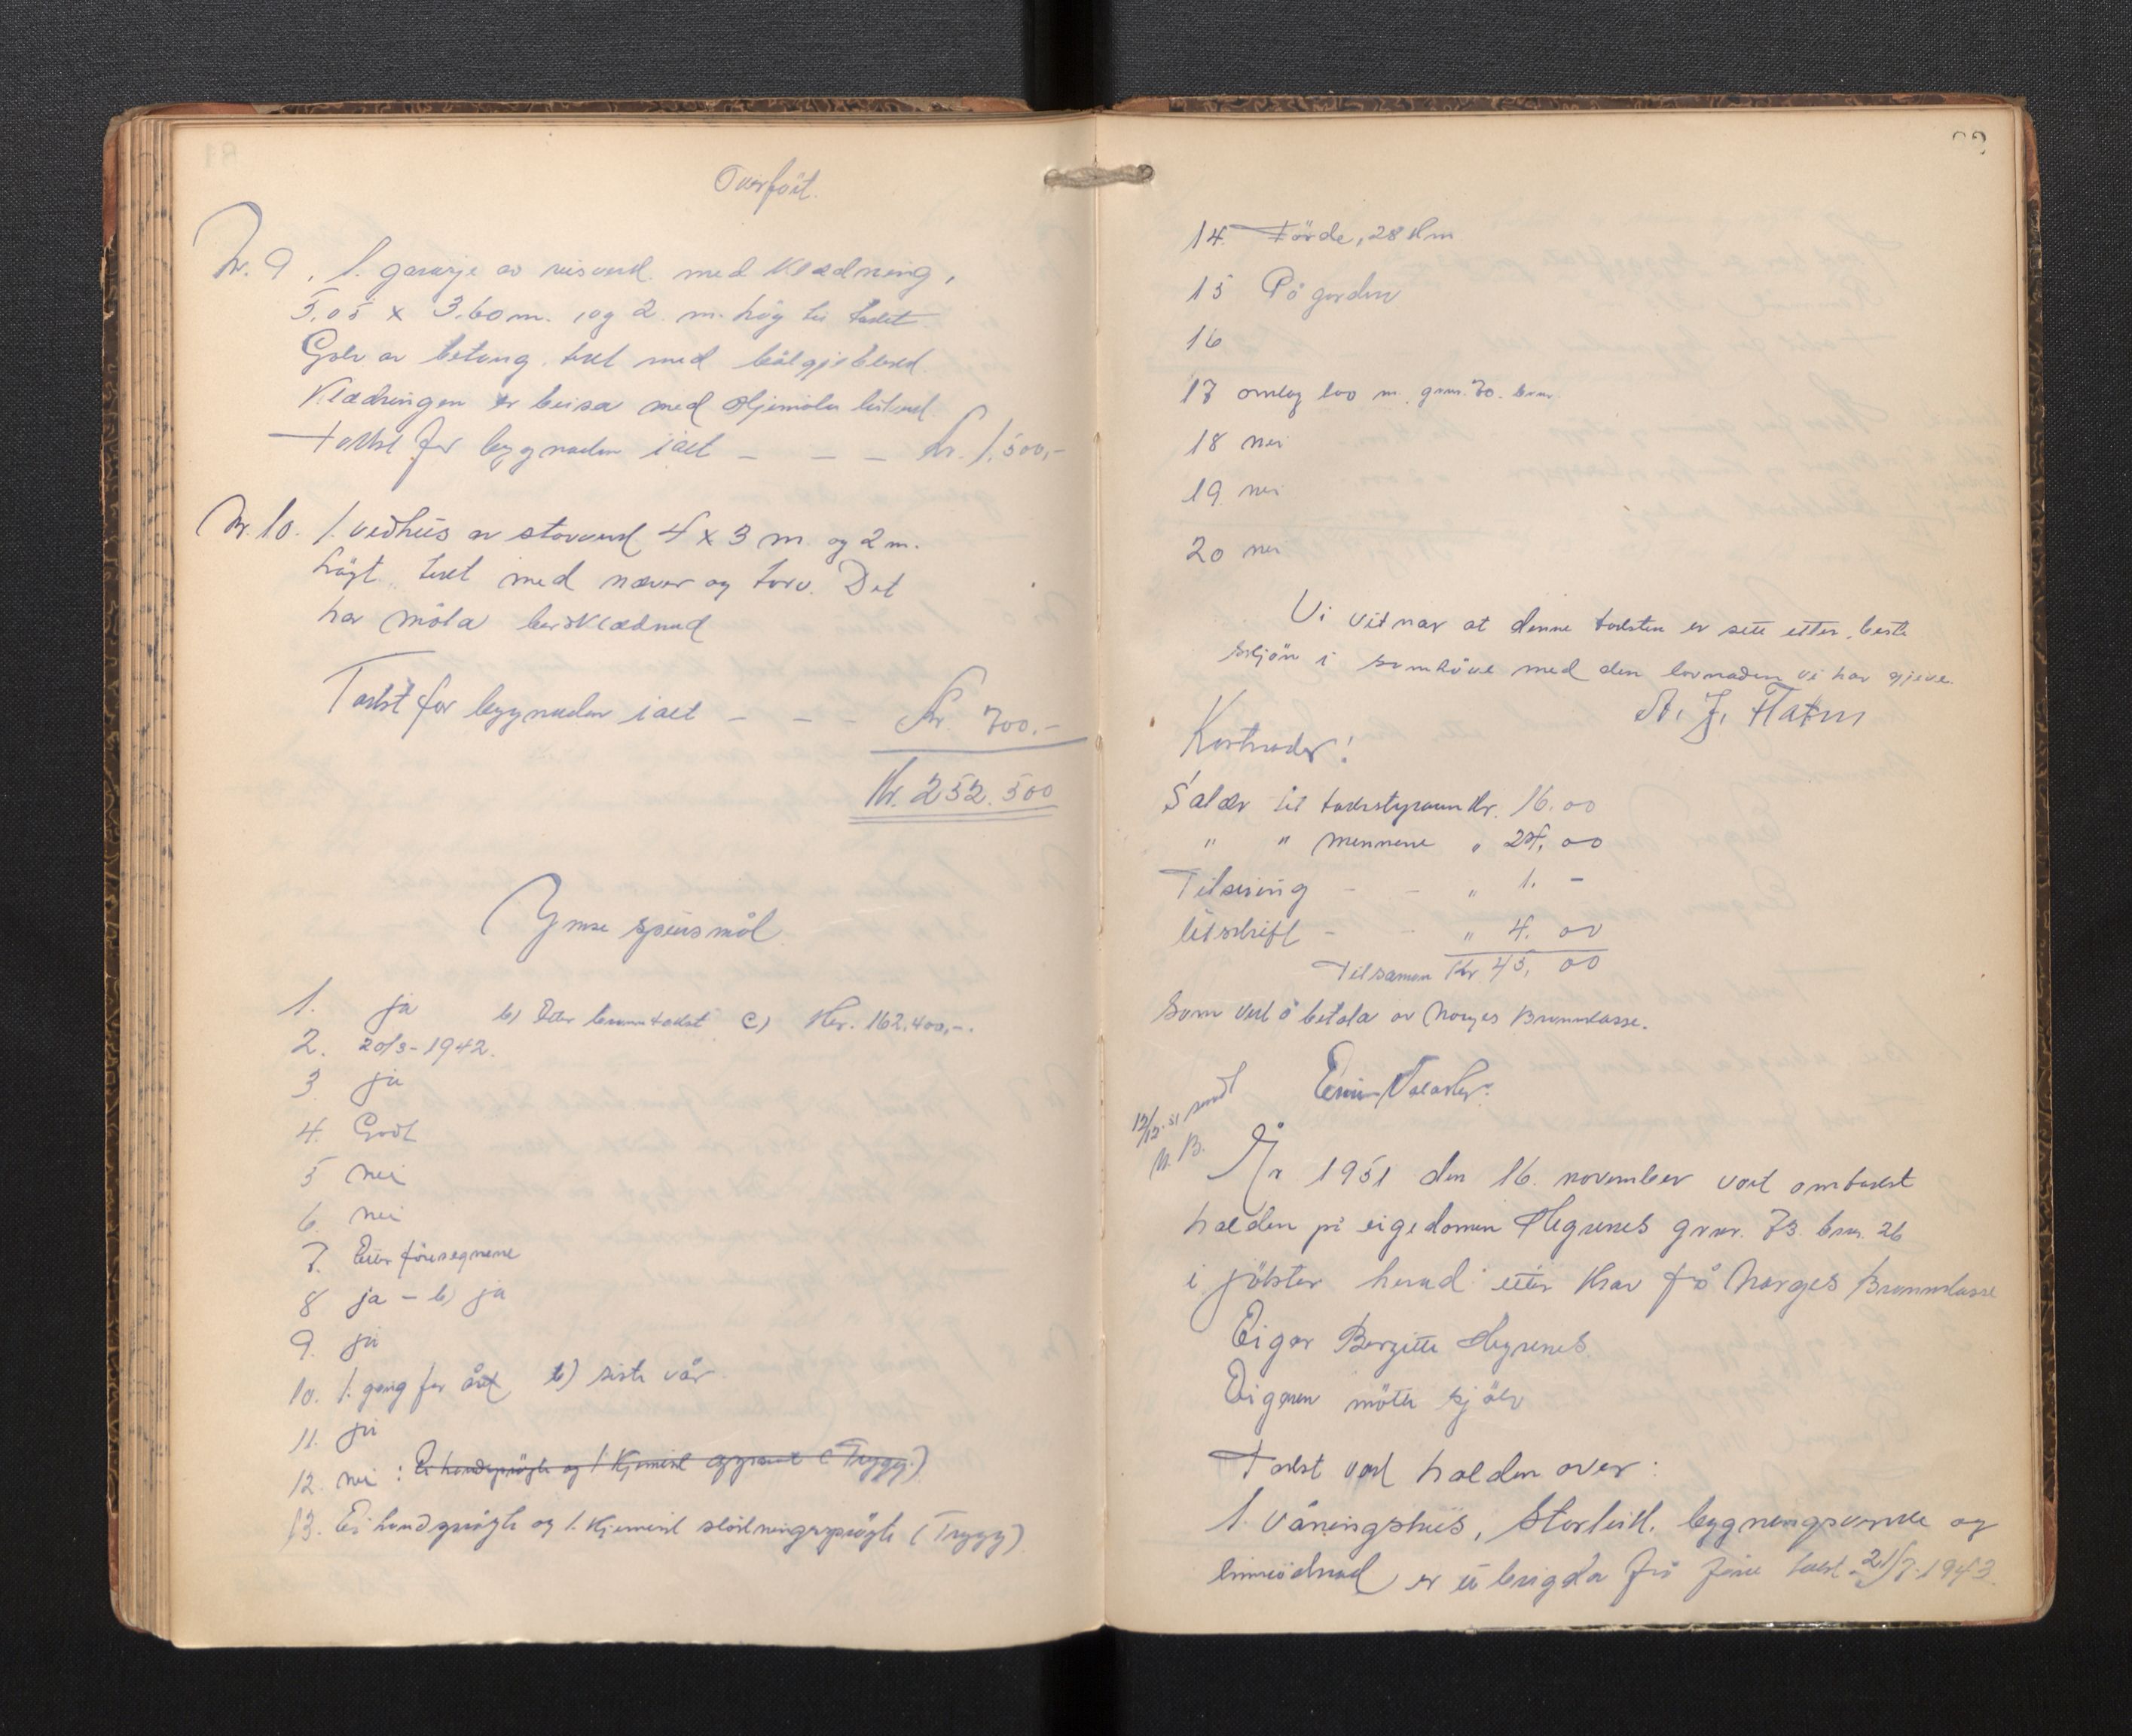 Overført.
Nr. 9, 1. garasje av reisverk med klædning,
5,05 x 3,60 m. og 2 m. høg til taket
Golv av betong, tekt med bølgjeblekk.
Klædningen er beisa med oljemåla listverk
Takst for bygnaden ialt – – – Kr. 1.500,-
Nr. 10. 1. vedhus av stavverk 4 x 3 m. og 2 m.
høgt tekt med næver og torv. Det
har måla bordklædnad
Takst for bygnaden ialt – – – Kr. 700.-
Kr. 252.500
Ymse spursmål
1. ja b) Etter branntakst c) Kr. 162.400,-.
2. 20/3-1942.
3 ja
4. Godt
5 nei
6. nei
7. Etter føresegnene
8 ja – b) ja
9. ja
10. 1. gong for året b) siste vår
11. ja
12. nei : Ei handsprøyte og 1 kjemisk apparat (Trygg.)
13. Ei handsprøyte og 1. kjemisk slökningssprøyte (Trygg)
14. Förde, 28 km
15 På garden
16
17 omlag 100 m. gnr. 70. bnr
18 nei
19 nei
20 nei
Vi vitnar at denne taksten er sett etter beste
skjön i samhöve med den lovnaden vi har gjeve.
Kostnader!
Salær til takststyraren Kr. 16.00
" " mennene " 24,00
Tilseiing – – " 1. –
Utskrift – – " 4. 00
Tilsamen Kr 45,00
Som vert å betala av Norges Brannkasse.
12/12-51 sendt
N. B.
År 1951 den 16. november vart omtakst
halden på eigedomen Hegrenes gnr. 73 bnr. 26
i Jölster herad etter krav frå Norges Brannkasse
Eigar Bergitte Hegrenes
Eigaren møtte sjølv
Takst vart halden over:
1. Våningshus, Storleik, bygningsverke og
innreidnad er ubrigda frå förre takst 21/7-1943.